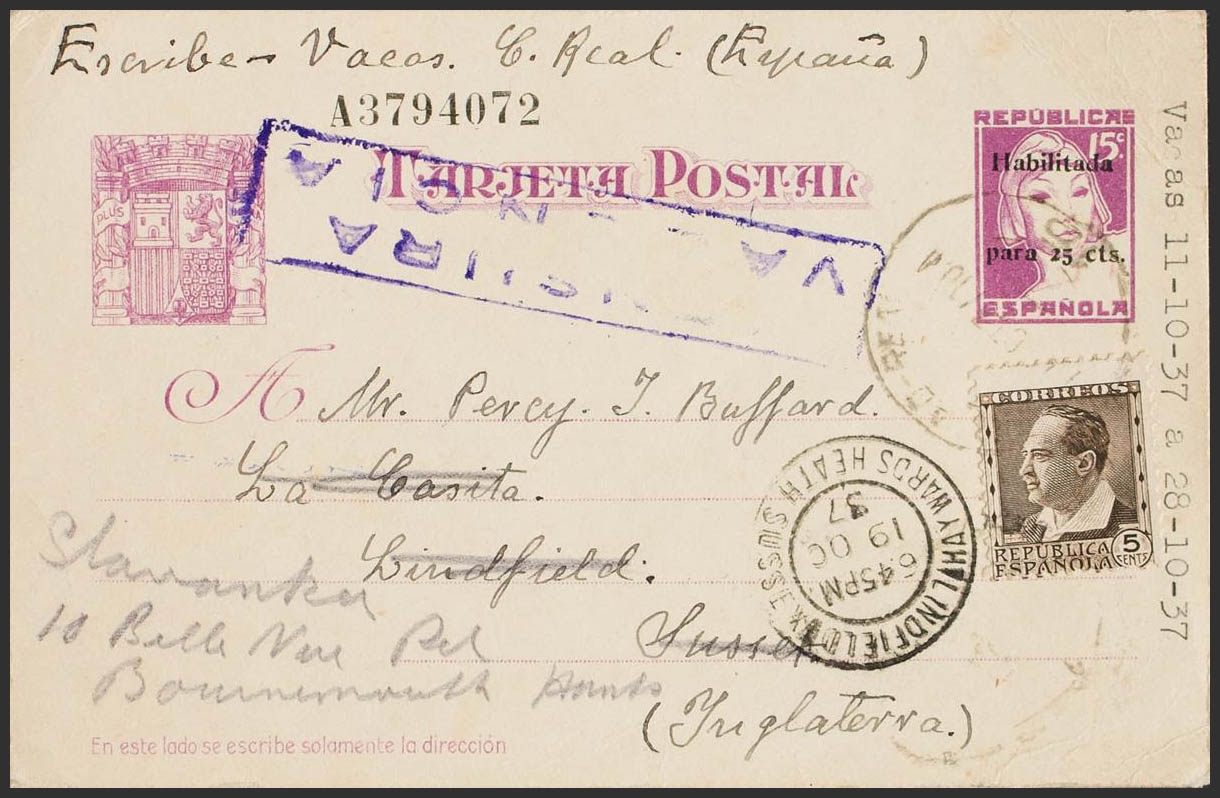 Escribe - Vacas. C. Real. (España)
A3794072
TARJETA POSTAL
PLUS
REPÚBLICA
15c.
Habilitada
para 25 cts.
ESPAÑOLA
Vacas 11-10-37 a 28-10-37
CENSURA
A Mr. Percy. J. Buffard.
La Casita.
Lindfield.
Sussex
(Inglaterra.)
CORREOS
REPUBLICA
ESPAÑOLA
5
CENTS
LINDFIELD HAYWARDS HEATH SUSSEX
6 45PM
19 OC
37
10 Belle Vue Rd
Bournemouth Hants
En este lado se escribe solamente la dirección